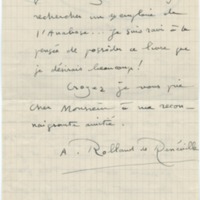 rechercher un exemplaire de
l'Anabase... je suis ravi à la
pensée de posséder ce livre que
je désirais beaucoup!
Croyez, je vous prie
cher Monsieur à ma recon-
naissante amitié.
A. Rolland de Renéville